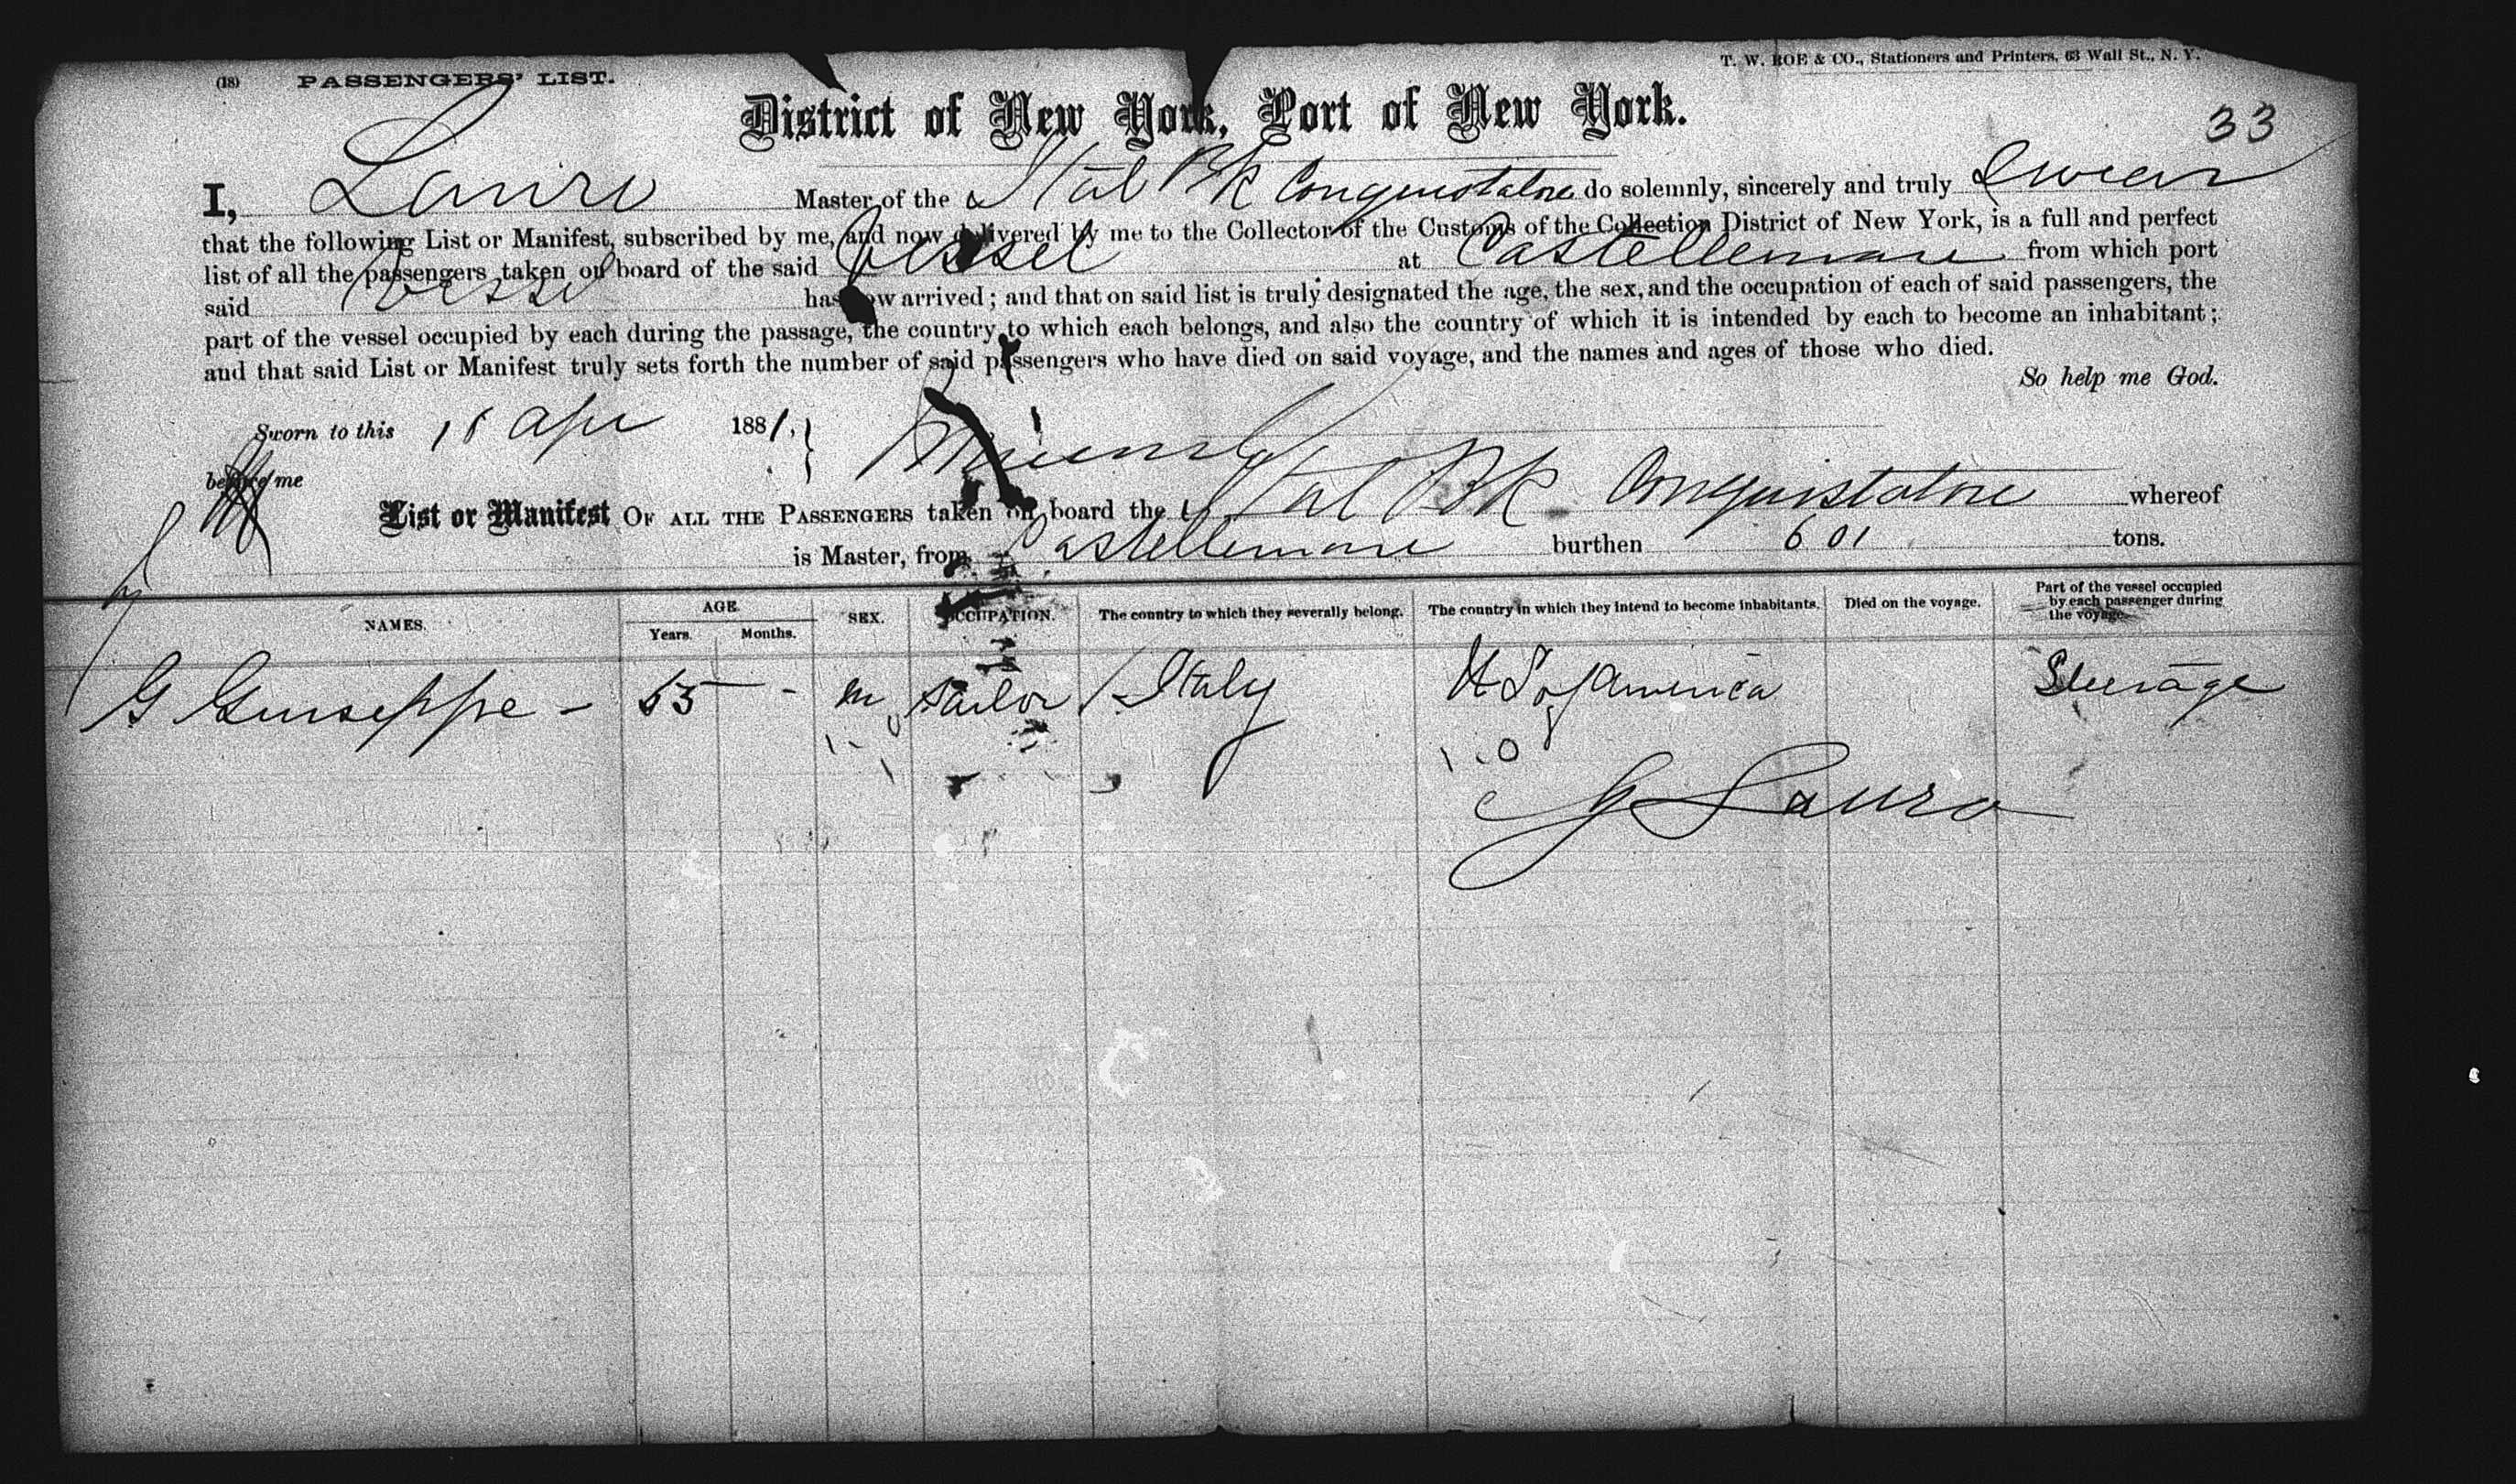 (18) PASSENGERS' LIST.
T. W. ROE & CO., Stationers and Printers, 63 Wall St., N. Y.
33
District of New York, Port of New York.
I, Lauro Master of the Ital Bk Conquistatore do solemnly, sincerely and truly Swear
that the following List or Manifest, subscribed by me, and now delivered by me to the Collector of the Customs of the Collection District of New York, is a full and perfect
list of all the passengers taken on board of the said Vessel at Castellemare from which port
said Vessel has now arrived; and that on said list is truly designated the age, the sex, and the occupation of each of said passengers, the
part of the vessel occupied by each during the passage, the country to which each belongs, and also the country of which it is intended by each to become an inhabitant;
and that said List or Manifest truly sets forth the number of said passengers who have died on said voyage, and the names and ages of those who died.
So help me God.
Sworn to this Apr 1881,
before me
List or Manifest OF ALL THE PASSENGERS taken on board the Ital Bk Conquistatore whereof
is Master, from Castellemare burthen 601 tons.
NAMES. AGE. SEX. OCCUPATION. The country to which they severally belong. The country in which they intend to become inhabitants. Died on the voyage. Part of the vessel occupied by each passenger during the voyage.
Years. Months.
G Giuseppe - 55 - m Sailor Italy U S of America Steerage
G Lauro